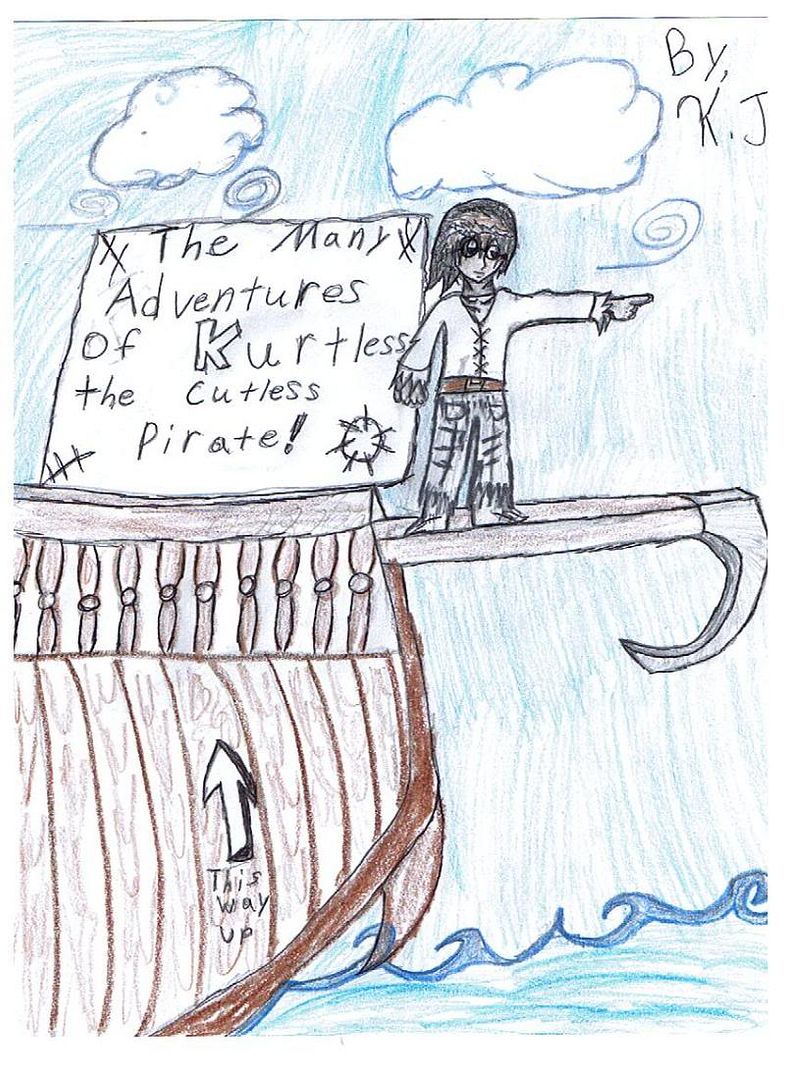 By,
K.J
The Many
Adventures
Of Kurtless
the Cutless
Pirate!
This
way
up